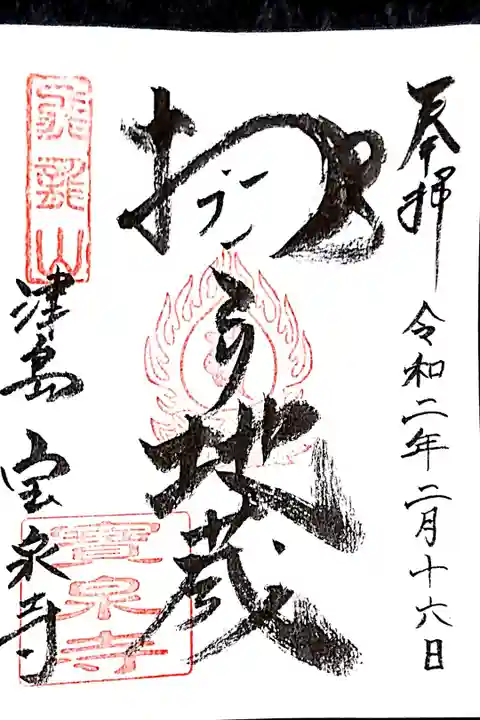 奉拝
令和二年二月十六日
地蔵
飛龍山
津島 宝泉寺
寶泉寺